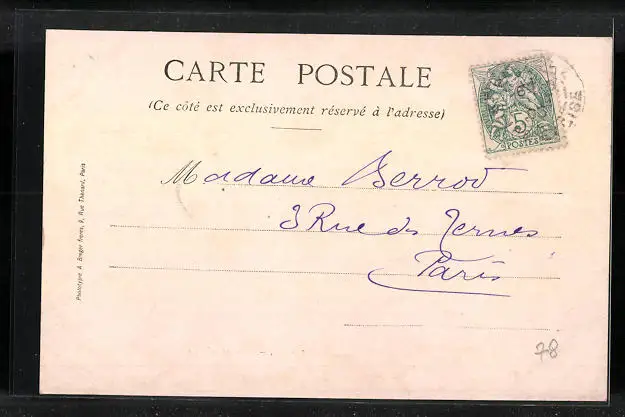 CARTE POSTALE
(Ce côté est exclusivement réservé à l'adresse)
5
POSTES
Madame
3 Rue des Ternes
Paris
Phototypie A. Bergeret frères, 9, Rue Thénard, Paris
78